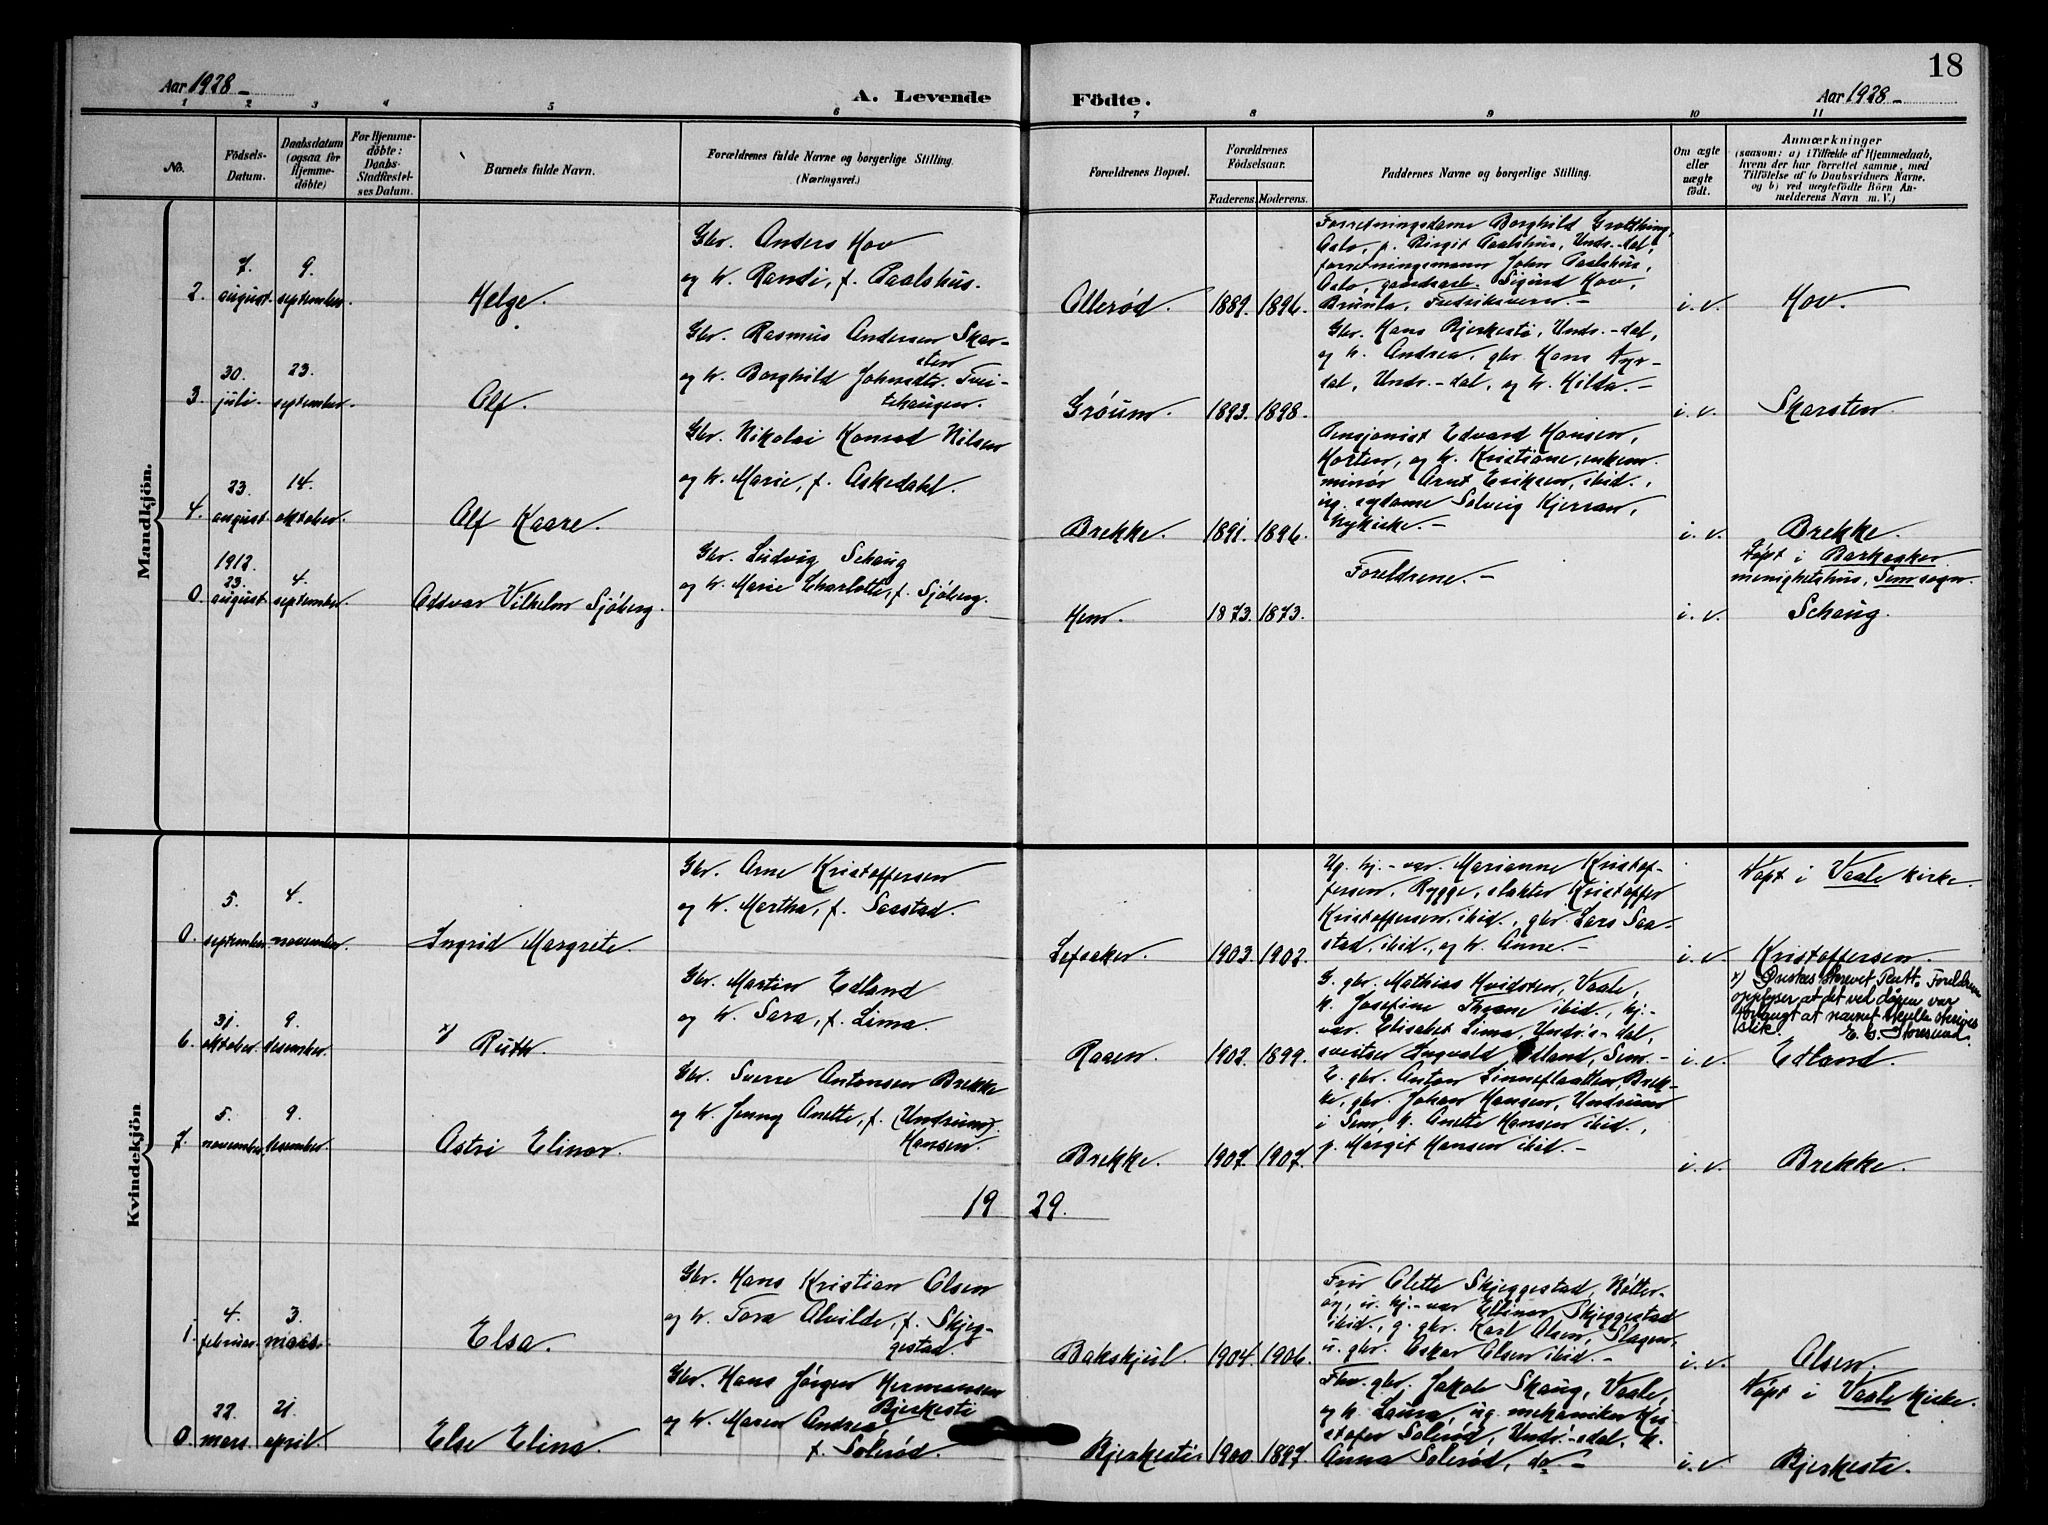 18
Aar 1928 -
A. Levende Födte.
Aar 1928 -
1 2 3 4 5 6 7 8 9 10 11
No.
Födsels-Datum.
Daabsdatum (ogsaa för Hjemme-döbte)
For Hjemme-döbte: Daabs-Stadfæstel-ses Datum.
Barnets fulde Navn.
Forældrenes fulde Navne og borgerlige Stilling. (Næringsvei.)
Forældrenes Bopæl.
Forældrenes Födselsaar.
Faderens. Moderens.
Faddernes Navne og borgerlige Stilling.
Om ægte eller uægte födt.
Anmærkninger
(saasom: a) i Tilfælde af Hjemmedaab,
hvem der har forrettet samme, med
Tilföielse af to Daabsvidners Navne.
og b) ved uægtefödte Börn An-
melderens Navn m. V.)
Mandkjön.
2. 7. august. 9. september. Helge.
Gbr. Anders Hov
og h. Randi, f. Paalshus.
Ollerød. 1889. 1896.
Forretningsdame Borghild Grøtting,
Oslo, p. Birgit Paalshus, Undr.-dal,
forretningsmann John Paalshus,
Oslo, gaardsarb. Sigurd Hov,
Brunla, Fredriksvern. -
i. e. Hov.
3. 30. juli. 23. september. Alf.
Gbr. Rasmus Andersen Skar-
sten
og h. Borghild Johnsdtr. Tvei-
tehaugen.
Grøum. 1893. 1898.
Gbr. Hans Bjerkestø, Undr.-dal,
og h. Andrea, gbr. Hans Nyr-
dal, Undr.-dal, og h. Hilda. -
i. e. Skarsten.
4. 23. august. 14. oktober. Alf Kaare.
Gbr. Nikolai Konrad Nilsen
og h. Marie, f. Askedahl.
Brekke. 1891. 1896.
Pensjonist Edvard Hansen,
Horten, og h. Kristiane, enkem.
minør Arnt Eriksen, ibid.,
ug. sydame Solveig Kjerran,
Nykirke. -
i. e. Brekke.
0. 1912. 23. august. 4. september. Oddvar Vilhelm Sjöberg.
Gbr. Ludvig Schaug
og h. Marie Charlotte, f. Sjöberg.
Hem. 1873. 1873.
Foreldrene. -
i. e.
Döpt i Barkaaker
menighetshus, Sem sogn.
Schaug.
Kvindekjön
0. 5. september. 4. november. Ingrid Margrete.
Gbr. Arne Kristoffersen
og h. Martha, f. Saastad.
Lefsaker. 1903. 1902.
Ug. hj.-var. Marianne Kristof-
fersen, Rygge, slakter Kristoffer
Kristoffersen, ibid., gbr. Lars Saa-
stad, ibid., og h. Anne. -
i. e.
Döpt i Vaale kirke.
Kristoffersen.
6. 31. oktober. 9. desember. x) Ruth.
Gbr. Martin Edland
og h. Sara, f. Lima.
Raaen. 1902. 1899.
G. gbr. Mathias Kvidsten, Vaale,
h. Josefine Thrane ibid., hj.-
var. Elisabet Lima, Undr.-dal,
sveitser Ingvald Edland, Sem. -
i. e.
x) Ønskes skrevet Rutt. Foreldrene
opplyser at det ved dåpen var
forlangt at navnet skulle skrives
slik.
Edland.
7. 5. november. 9. desember. Astri Elinor.
Gbr. Sverre Antonsen Brekke
og h. Jenny Anette, f. (Undrum).
Hansen.
Brekke. 1907. 1907.
E. gbr. Anton Linnesflaatten, Brek-
ke, gbr. Johan Hansen, Undrum
i Sem, h. Anette Hansen ibid.,
p. Margit Hansen ibid. -
i. e. Brekke.
19 29.
1. 4. februar. 3. mars. Elsa.
Gbr. Hans Kristian Olsen
og h. Tora Alvilde, f. Skjeg-
gestad.
Bakskjul. 1904. 1906.
Fru Olette Skjeggestad, Nötter-
öy, u. hj.-var Ellinor Skjeggestad
ibid., g. gbr. Karl Olsen, Slagen,
u. gbr. Oskar Olsen ibid. -
i. e. Olsen.
0. 22. mars. 21. april. Else Elina.
Gbr. Hans Jörgen Hermansen
Bjerkestö
og h. Maren Andrea,
f. Solerød.
Bjerkestö. 1900. 1897.
Fhv. gbr. Jakob Skaug, Vaale,
og h. Laura, ug. mekaniker Kri-
stofer Solerød, Undr.-dal, h.
Anna Solerød, do. -
i. e.
Döpt i Vaale kirke.
Bjerkestö.